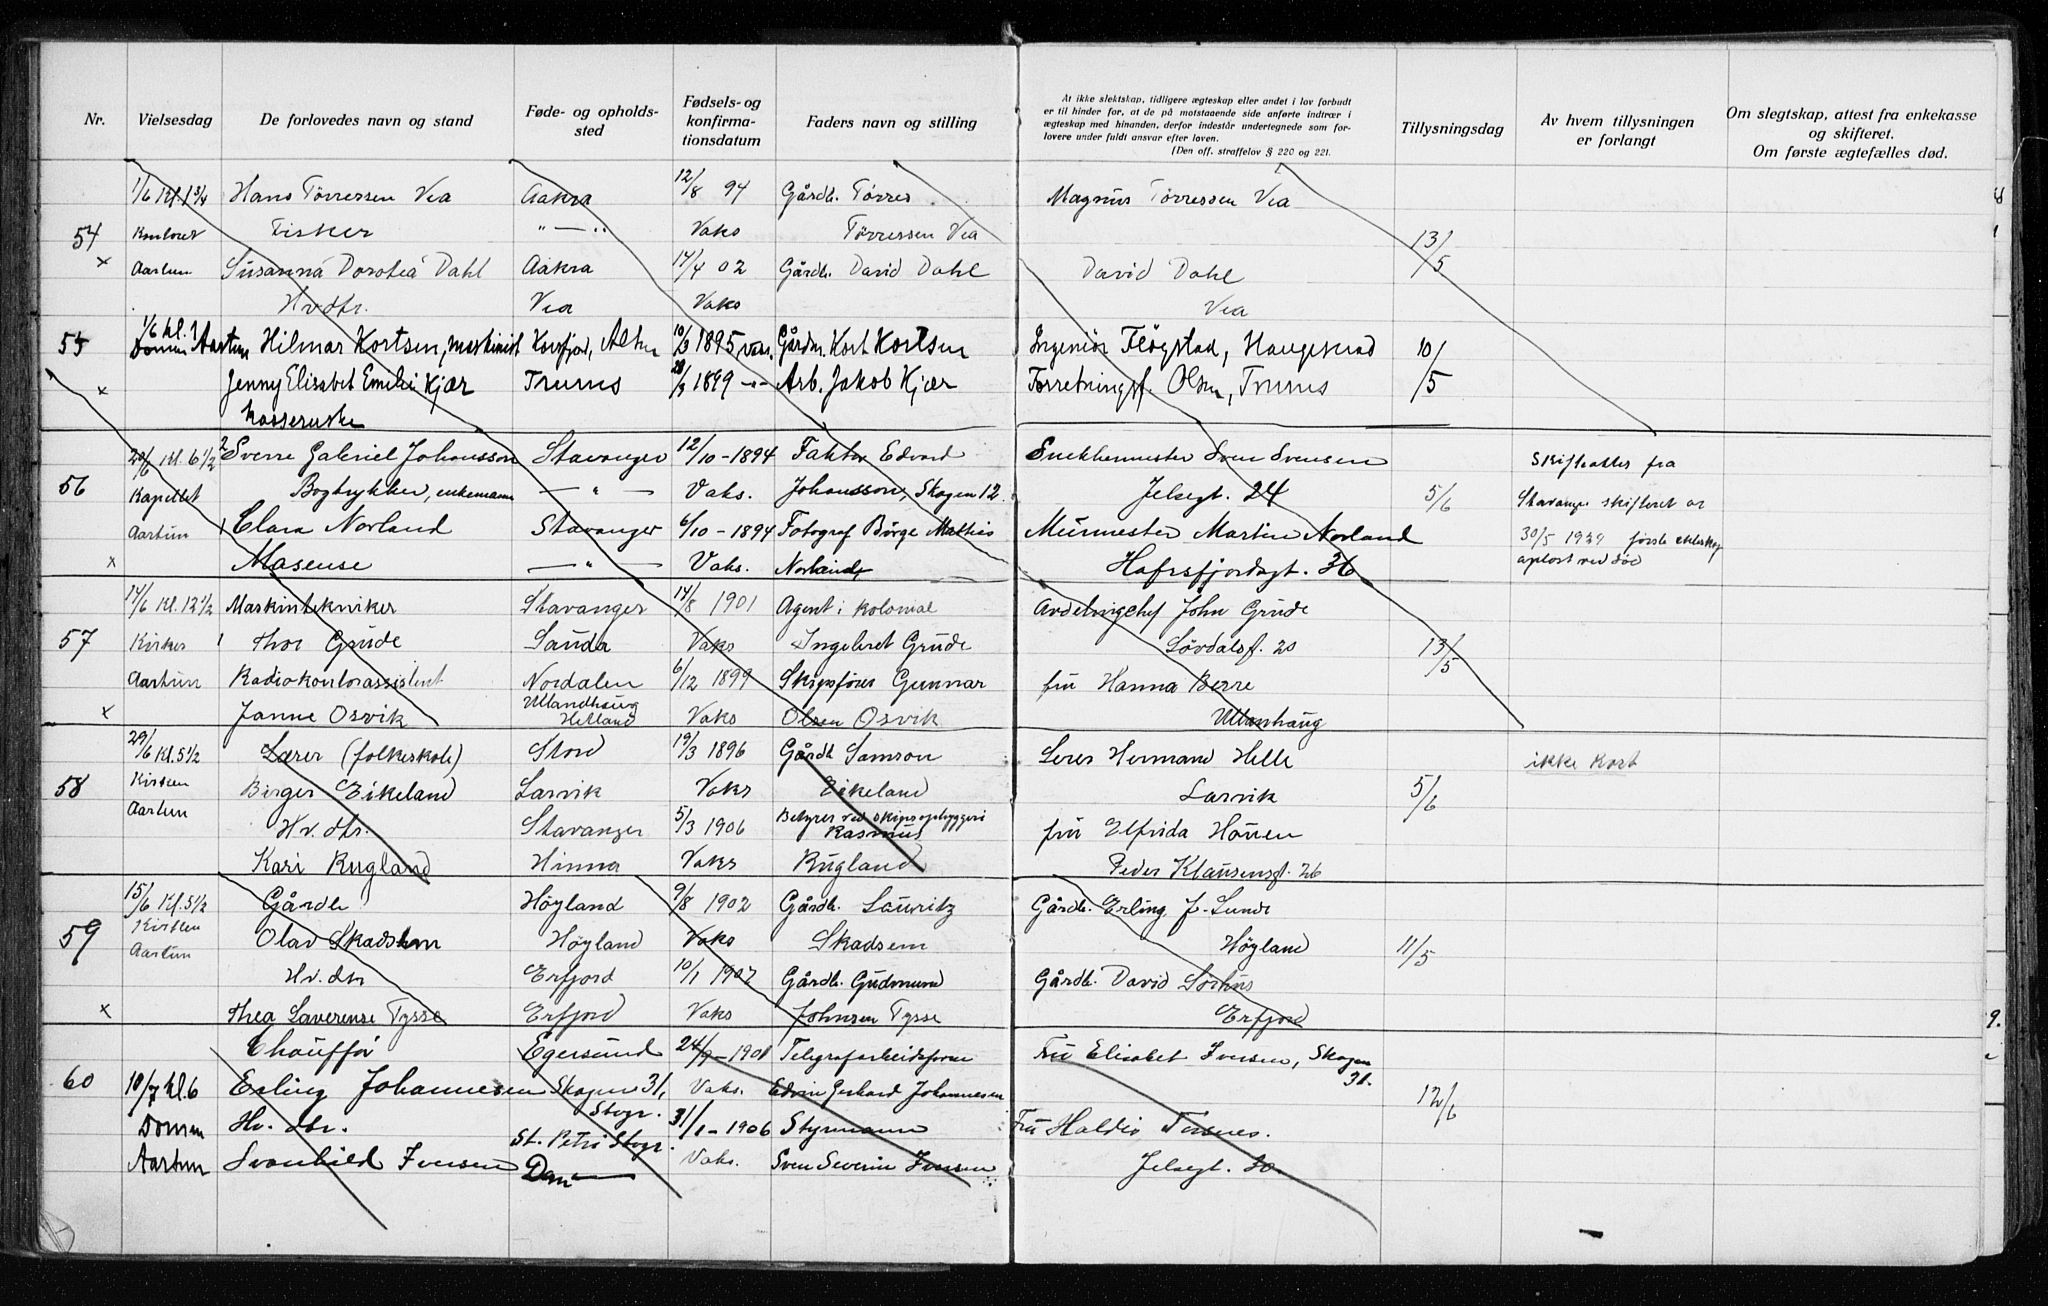 Nr. Vielsesdag De forlovedes navn og stand Føde- og opholds-sted Fødsels- og konfirmationsdatum Faders navn og stilling At ikke slektskap, tidligere ægteskap eller andet i lov forbudt er til hinder for, at de på motstaaende side anførte indtrær i ægteskap med hinanden, derfor indestår undertegnede som forlovere under fuldt ansvar efter loven. [Den off. straffelov § 220 og 221. Tillysningsdag Av hvem tillysningen er forlangt Om slegtskap, attest fra enkekasse og skifteret. Om første ægtefælles død.
1/6 Kl. 1 3/4 Hans Tørressen Vea Aakra 12/8 94 Gårdb. Tørres Magnus Tørressen Vea
54 Kontoret Fisker " — " Vaks Tørressen Vea 13/5
x Aartun Susanna Dorotea Dahl Aakra 17/4 02 Gårdb. David Dahl David Dahl
Hv dtr. Vea Vaks Vea
55 1/6 kl. 1 Domen Aartun Hilmar Kortsen, maskinist Korsfjord, Alten 10/ 1895, vaks. Gårdm. Kort Kortsen Ingeniör Flögstad, Haugesund 10/5
x Jenny Elisabet Emilie Kjær Tnures 28/3 1899 -"- Arb. Jakob Kjær Forretningsf. Olsen, Tnures
Kassererske
20/6 Kl. 6 1/2 2 Sverre Gabriel Johansson Stavanger 12/10 - 1894 Faktor Edvard Snekkermester Sven Svensen Skifteattest fra
56 Kapellet Bogtrykker, enkemann — " — Vaks. Johansson, Skagen 12. Jelsegt. 24 5/6 Stavanger skifteret av
Aartun 1 Clara Norland Stavanger 6/10 - 1894 Fotograf Börge Mathias Murmester Martin Norland 30/5 1929 første ekteskap
x Maseuse — " — Vaks. Norland Hafrsfjordsgt. 36 opløst ved død
14/6 Kl. 12 1/2 Maskintekniker Stavanger 14/8 1901 Agent i kolonial Avdelingchef John Grude
57 Kirken 1 Thor Grude Sauda Vaks Ingebret Grude Lövdalsf. 20 13/5
Aartun Radiokontorassistent Nordalen 6/12 1899 Skipsfører Gunnar fru Hanna Berre
x Janne Osvik Ullandhaug Hetland Vaks Olsen Osvik Ullanhaug
29/6 Kl. 5 1/2 Lærer (folkeskole) Stord 19/3 1896 Gårdb. Samson Lærer Hermand Helle ikke kort
58 Kirken Birger Eikeland Larvik Vaks Eikeland Larvik 5/6
Aartun Hv. dtr. Stavanger 5/3 1906 Bestyrer ved skipsophyggeri Rasmus fru Elfrida Houen
Kari Rugland Hinna Vaks Rugland Peder Klausensgt. 26
15/6 Kl. 5 1/2 Gårdb. Höyland 9/8 1902 Gårdb. Lauritz Gårdb. Erling J. Lunde
59 Kirken Aartun Olav Skadsem Höyland Vaks Skadsem Höyland 11/5
Hv. dtr Erfjord 10/1 1907 Gårdb. Gudmund Gårdb. David Sörhus
x Thea Laverense Tysse Erfjord Vaks Johnsen Tysse Erfjord
Chauffør Egersund 24/9 - 1901 Telegrafarbeidsform. Fru Elisabet Iversen, Skagen
60 10/7 kl. 6 Erling Johannesen Skagen 31, Stvgr. Vaks. Edvin Gerhard Johannesen 31. 12/6
Domen Hv. dtr. St. Petri Stvgr. 31/1 - 1906 Styrmann Fru Haldis Tersnes.
Aartun Svanhild Iversen Dom — Vaks. Sven Severin Iversen Jelsegt. 30.